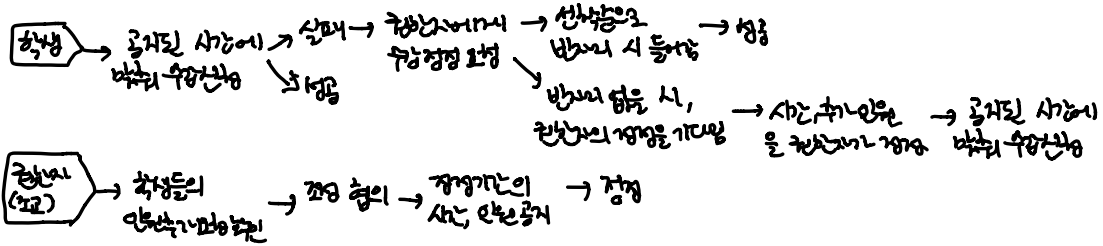 학생
공지된 시간에
맞춰 수업신청
실패
성공
권한자에게
수강정정 요청
선착순으로
빈자리 시 들어감
성공
빈자리 없을 시,
권한자의 정정을 기다림
시간, 추가인원
을 권한자가 정정
공지된 시간에
맞춰 수업신청
권한자
(조교)
학생들의
인원추가
조정 협의
정정기간의
시간, 인원 공지
정정